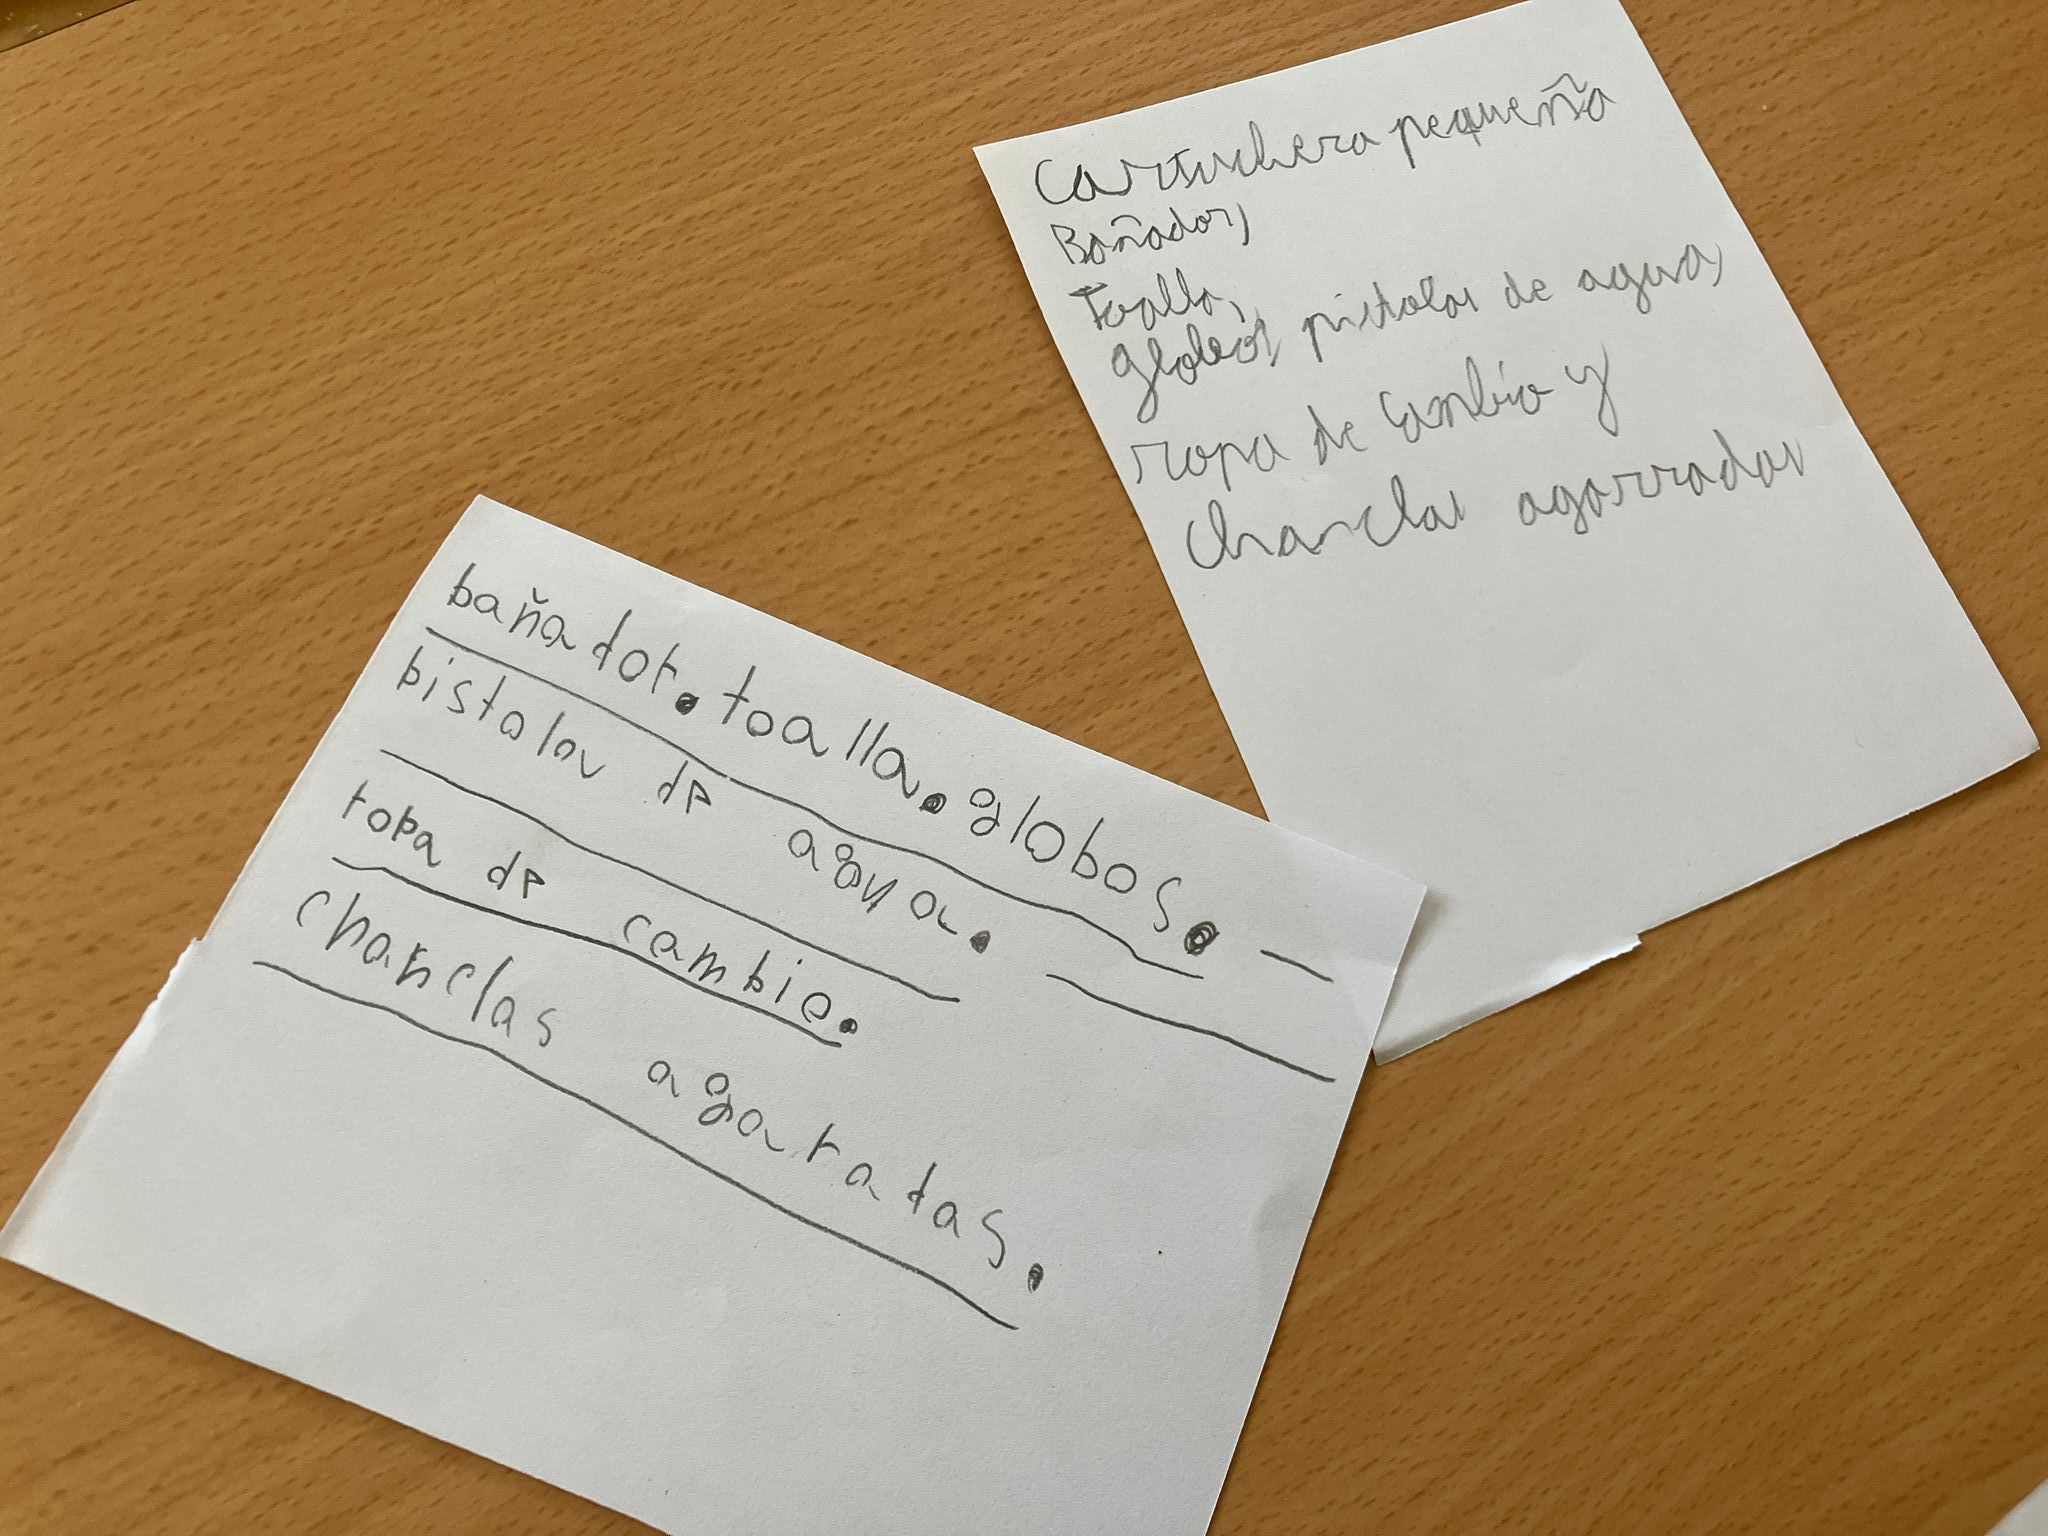 Cartuchera pequeña
Bañador,
Toalla,
globos, pistolas de agua,
ropa de cambio y
chanclas agarradas
bañador. toalla. globos.
pistolas de agua.
ropa de cambio.
chanclas agaradas.